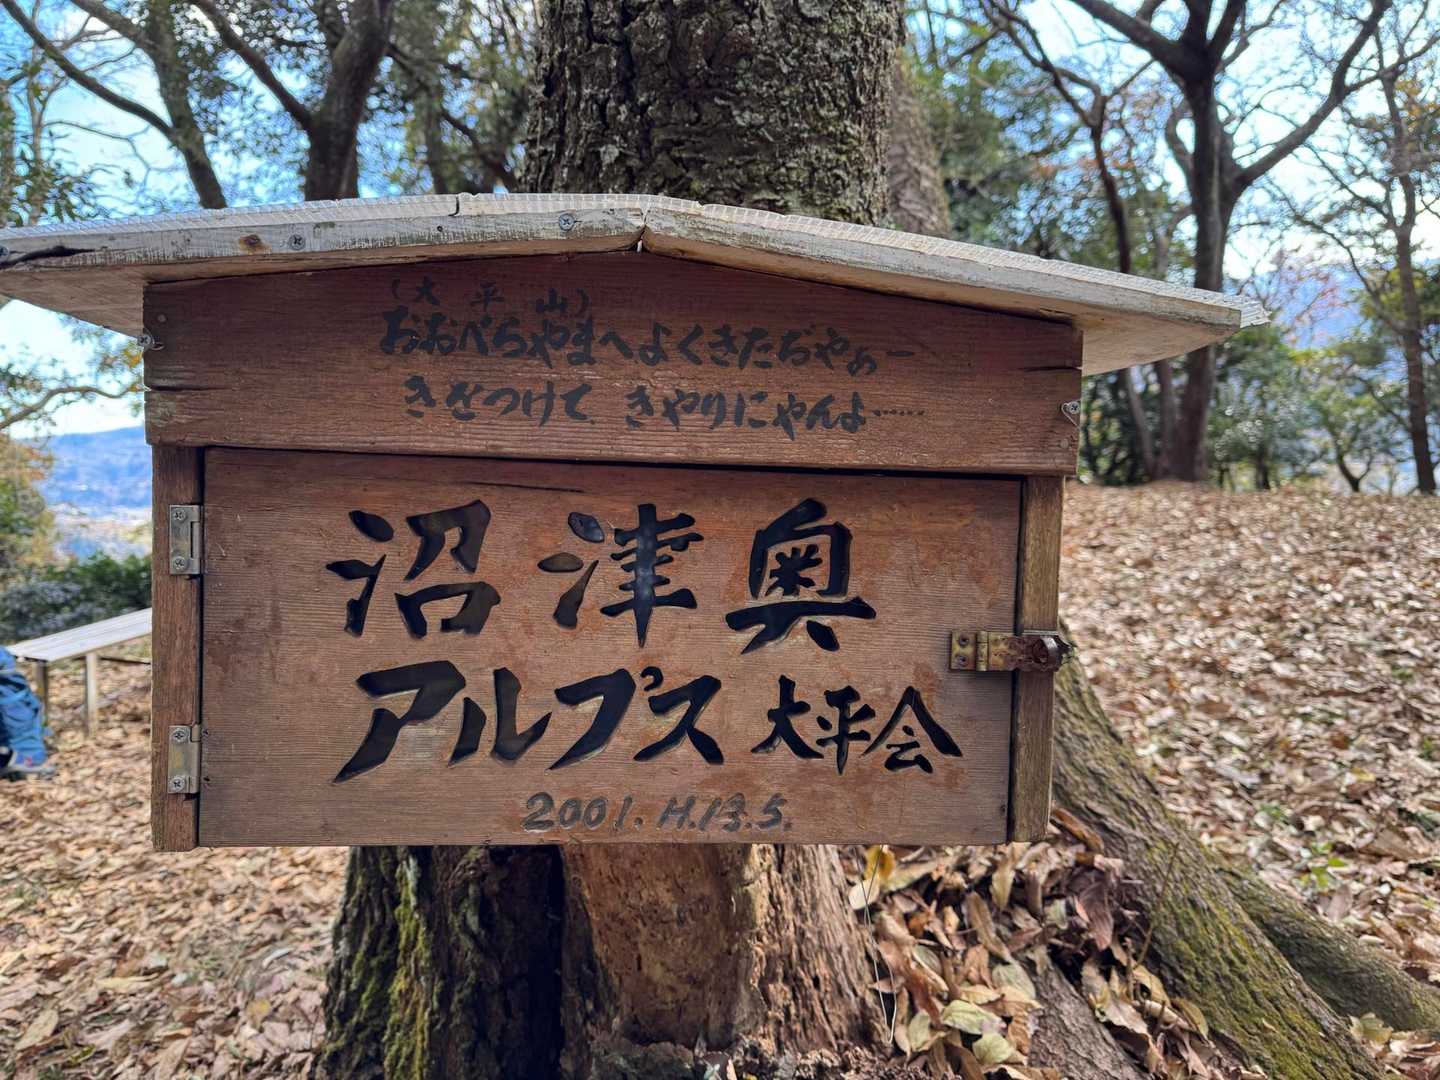 (大平山)
おおべらやまへよくきたぢやぁー
きをつけて きやりにゃんよ……
沼津奥
アルプス 大平会
2001. H.13.5.